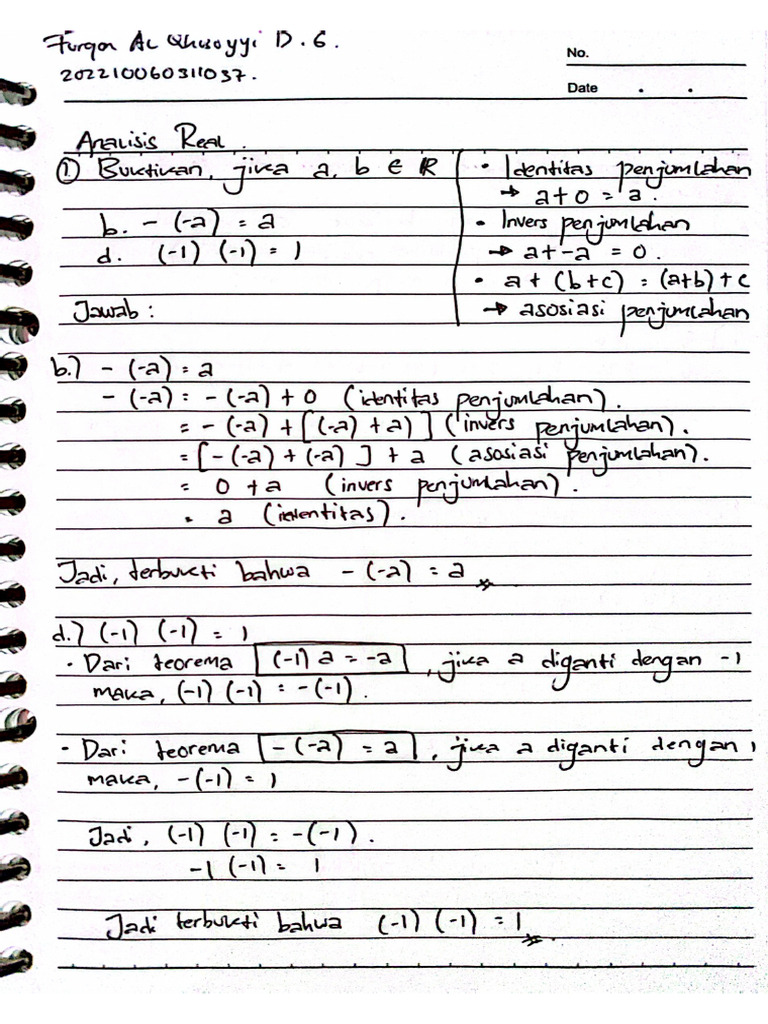 Furqon Al Qhusoyyi D. 6.
202210060311037.
No.
Date . .
Analisis Real.
① Buktikan, jika a, b ∈ R
b. -(-a) = a
d. (-1) (-1) = 1
Jawab :
• Identitas penjumlahan
→ a+0 = a.
• Invers penjumlahan
→ a+-a = 0.
• a + (b+c) = (a+b)+c
→ asosiasi penjumlahan
b.) -(-a) = a
-(-a) = -(-a) + 0 (identitas penjumlahan).
= -(-a) + [(-a) + a)] (invers penjumlahan).
= [-(-a) + (-a)] + a (asosiasi penjumlahan).
= 0 + a (invers penjumlahan).
= a (identitas).
Jadi, terbukti bahwa -(-a) = a
d.) (-1) (-1) = 1
• Dari teorema (-1) a = -a , jika a diganti dengan -1
maka, (-1) (-1) = -(-1).
• Dari teorema -(-a) = a , jika a diganti dengan 1
maka, -(-1) = 1
Jadi, (-1) (-1) = -(-1).
-1 (-1) = 1
Jadi terbukti bahwa (-1) (-1) = 1